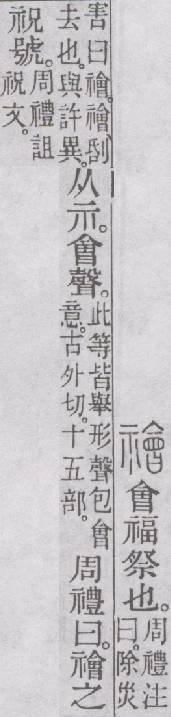 禬 會福祭也。
周禮注
曰。除災
害曰禬。禬刮
去也。與許異。
从示。會聲。
此等皆舉形聲包會
意。古外切。十五部。
周禮曰。禬之
祝號。
周禮詛
祝文。